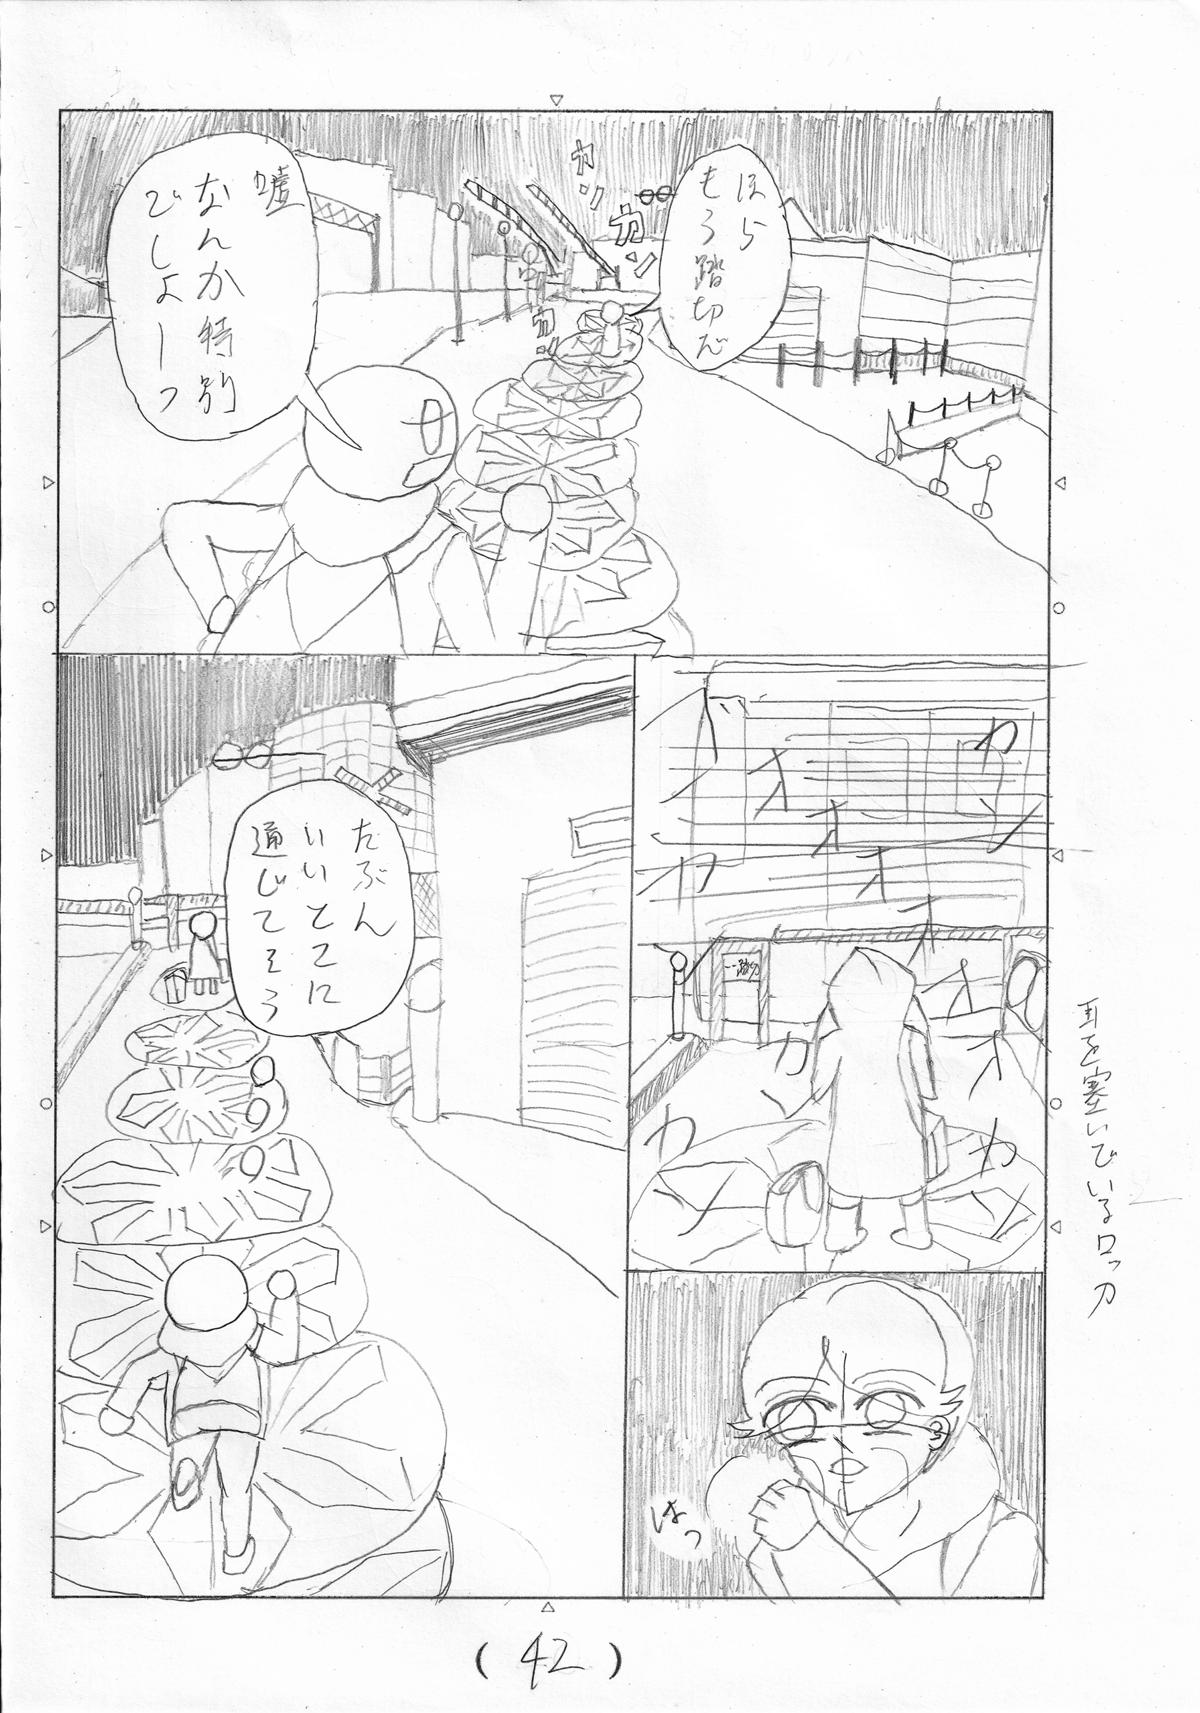 ほら
もう踏切だ
カンカンカン
嘘
なんか特別
でしょーっ
カンカンカン
オオオオオオ
カンカン
耳を塞いでいるロッカ
はっ
たぶん
いいとこに
通じてそう
(42)